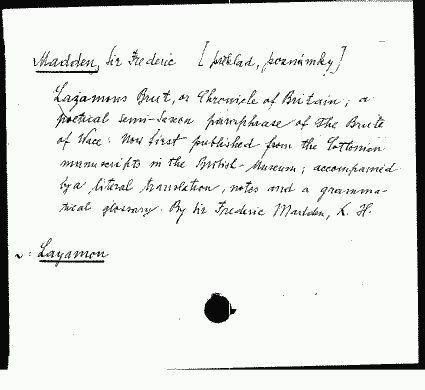 Madden, Sir Frederic [překlad, poznámky]
Laȝamons Brut, or Chronicle of Britain; a
poetical semi-Saxon paraphrase of The Brute
of Wace. Now first published from the Cottonian
manuscripts in the British-Museum; accompanied
by a literal translation, notes and a gramma-
tical glossary. By Sir Frederic Madden, K. H.
v: Layamon